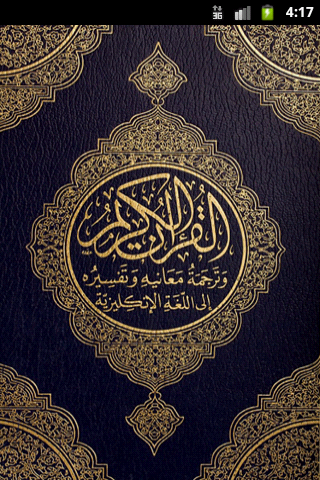 3G
4:17
القرآن الكريم
وَتَرْجَمَةُ مَعَانِيهِ وَتَفْسِيرُه
إِلَى اللُّغَةِ الإِنْكِلِيزِيَّة